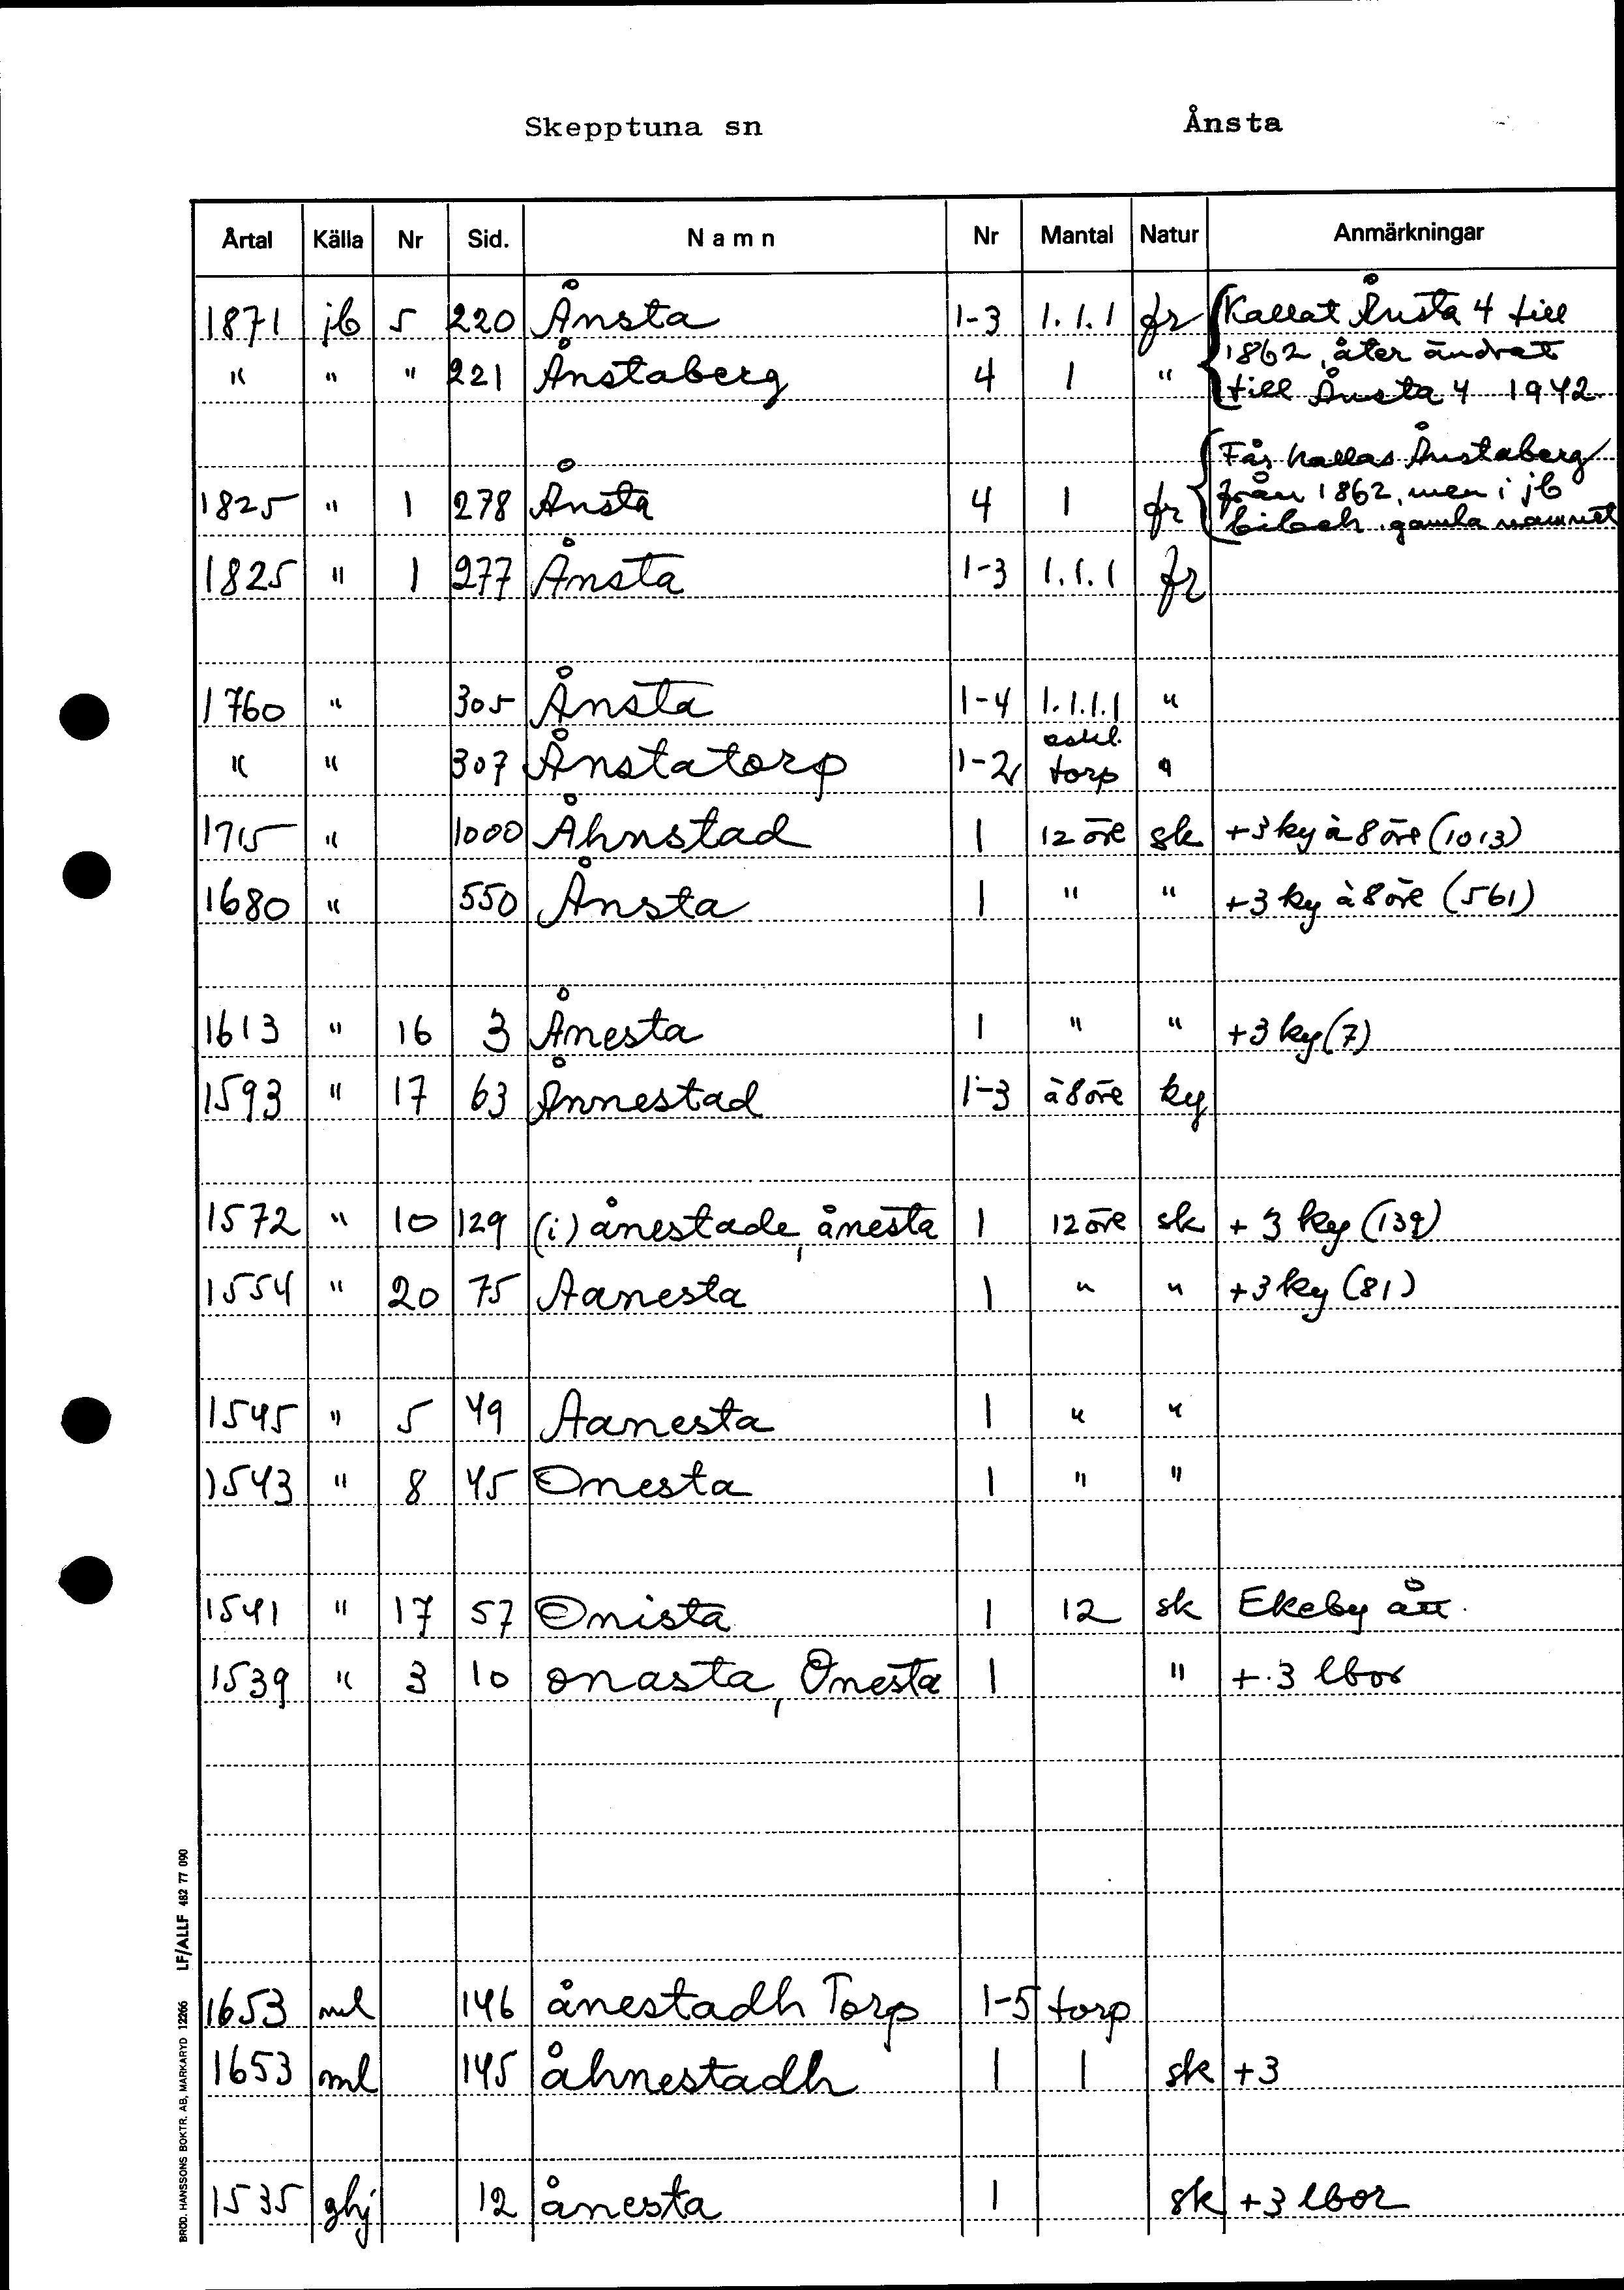 Skepptuna sn Ånsta
Årtal Källa Nr Sid. Namn Nr Mantal Natur Anmärkningar
1871 jb 5 220 Ånsta 1-3 1.1.1 fr Kallat Ånsta 4 till
1862, åter ändrat
" " " 221 Ånstaberg 4 1 " till Ånsta 4 1942
Får kallas Ånstaberg
1825 " 1 278 Ånsta 4 1 fr från 1862, men i jb
gamla namnet
1825 " 1 277 Ånsta 1-3 1.1.1 fr
1760 " 305 Ånsta 1-4 1.1.1.1 "
" " 307 Ånstatorp 1-2 torp "
1715 " 1000 Åhnstad 1 12 öre sk +3 ky à 8 öre (1013)
1680 " 550 Ånsta 1 " " +3 ky à 8 öre (561)
1613 " 16 3 Ånesta 1 " " +3 ky (7)
1593 " 17 63 Ånnestad 1-3 à 8 öre ky
1572 " 10 129 (i) ånestade, ånesta 1 12 öre sk + 3 ky (139)
1554 " 20 75 Aanesta 1 " " +3 ky (81)
1545 " 5 49 Aanesta 1 " "
1543 " 8 45 Onesta 1 " "
1541 " 17 57 Onista 1 12 sk Ekeby ått.
1539 " 3 10 onasta, Onesta 1 " + 3 lbor
1653 ml 146 ånestadh Torp 1-5 torp
1653 ml 145 åhnestadh 1 1 sk +3
1535 ghj 12 ånesta 1 sk +3 lbor
BRÖD. HANSSONS BOKTR. AB, MARKARYD 12266 LF/ALLF 482 77 090